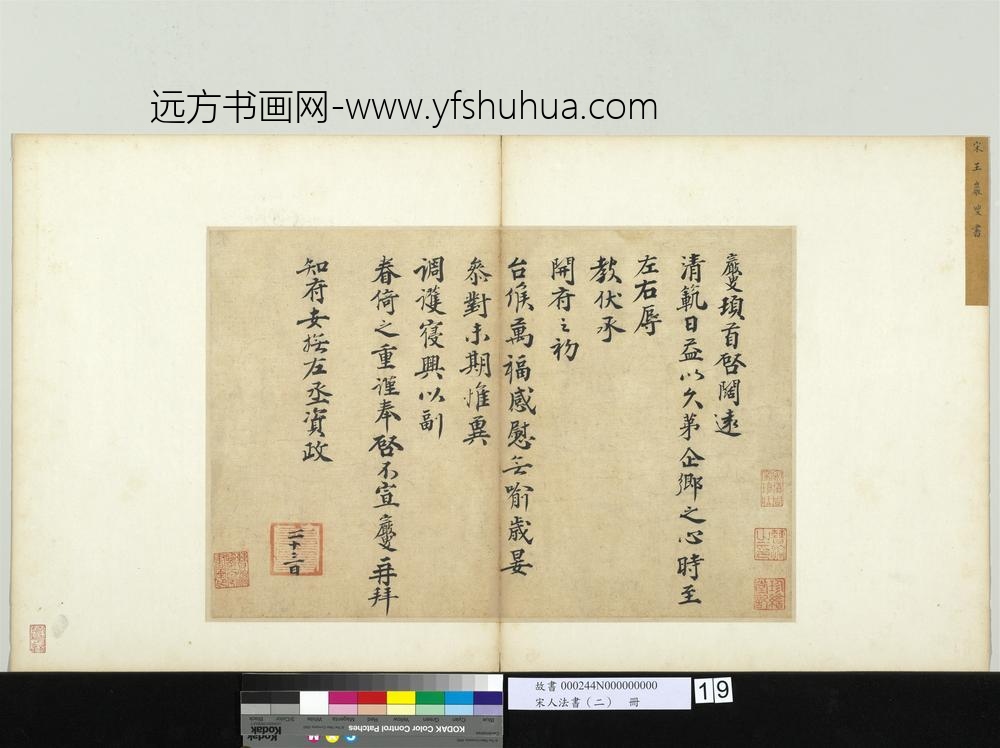 远方书画网-www.yfshuhua.com
宋王巖叟書
巖叟頓首啓闊遠
清範日益以久第企鄉之心時至
左右辱
教伏承
開府之初
台候萬福感慰無喻歲晏
叅對未期惟冀
調護寢興以副
眷倚之重謹奉啓不宣巖叟再拜
知府安撫左丞資政
二十三日
故書 000244N000000000
宋人法書(二) 冊
19
Blue
Cyan
Green
Yellow
Red
Magenta
White
3/Color
Black
KODAK Color Control Patches
Kodak